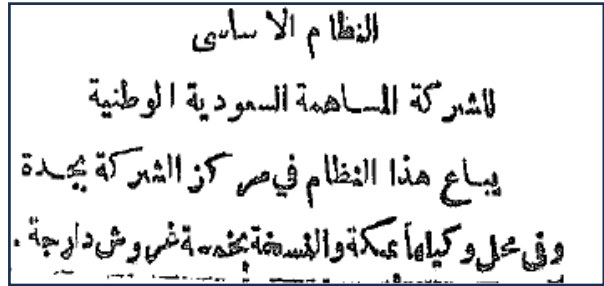 النظام الاساسى
للشركة المساهمة السعودية الوطنية
يباع هذا النظام في مركز الشركة بجدة
وفى محل وكيلها بمكة والنسخة بخمسة غروش دارجة .